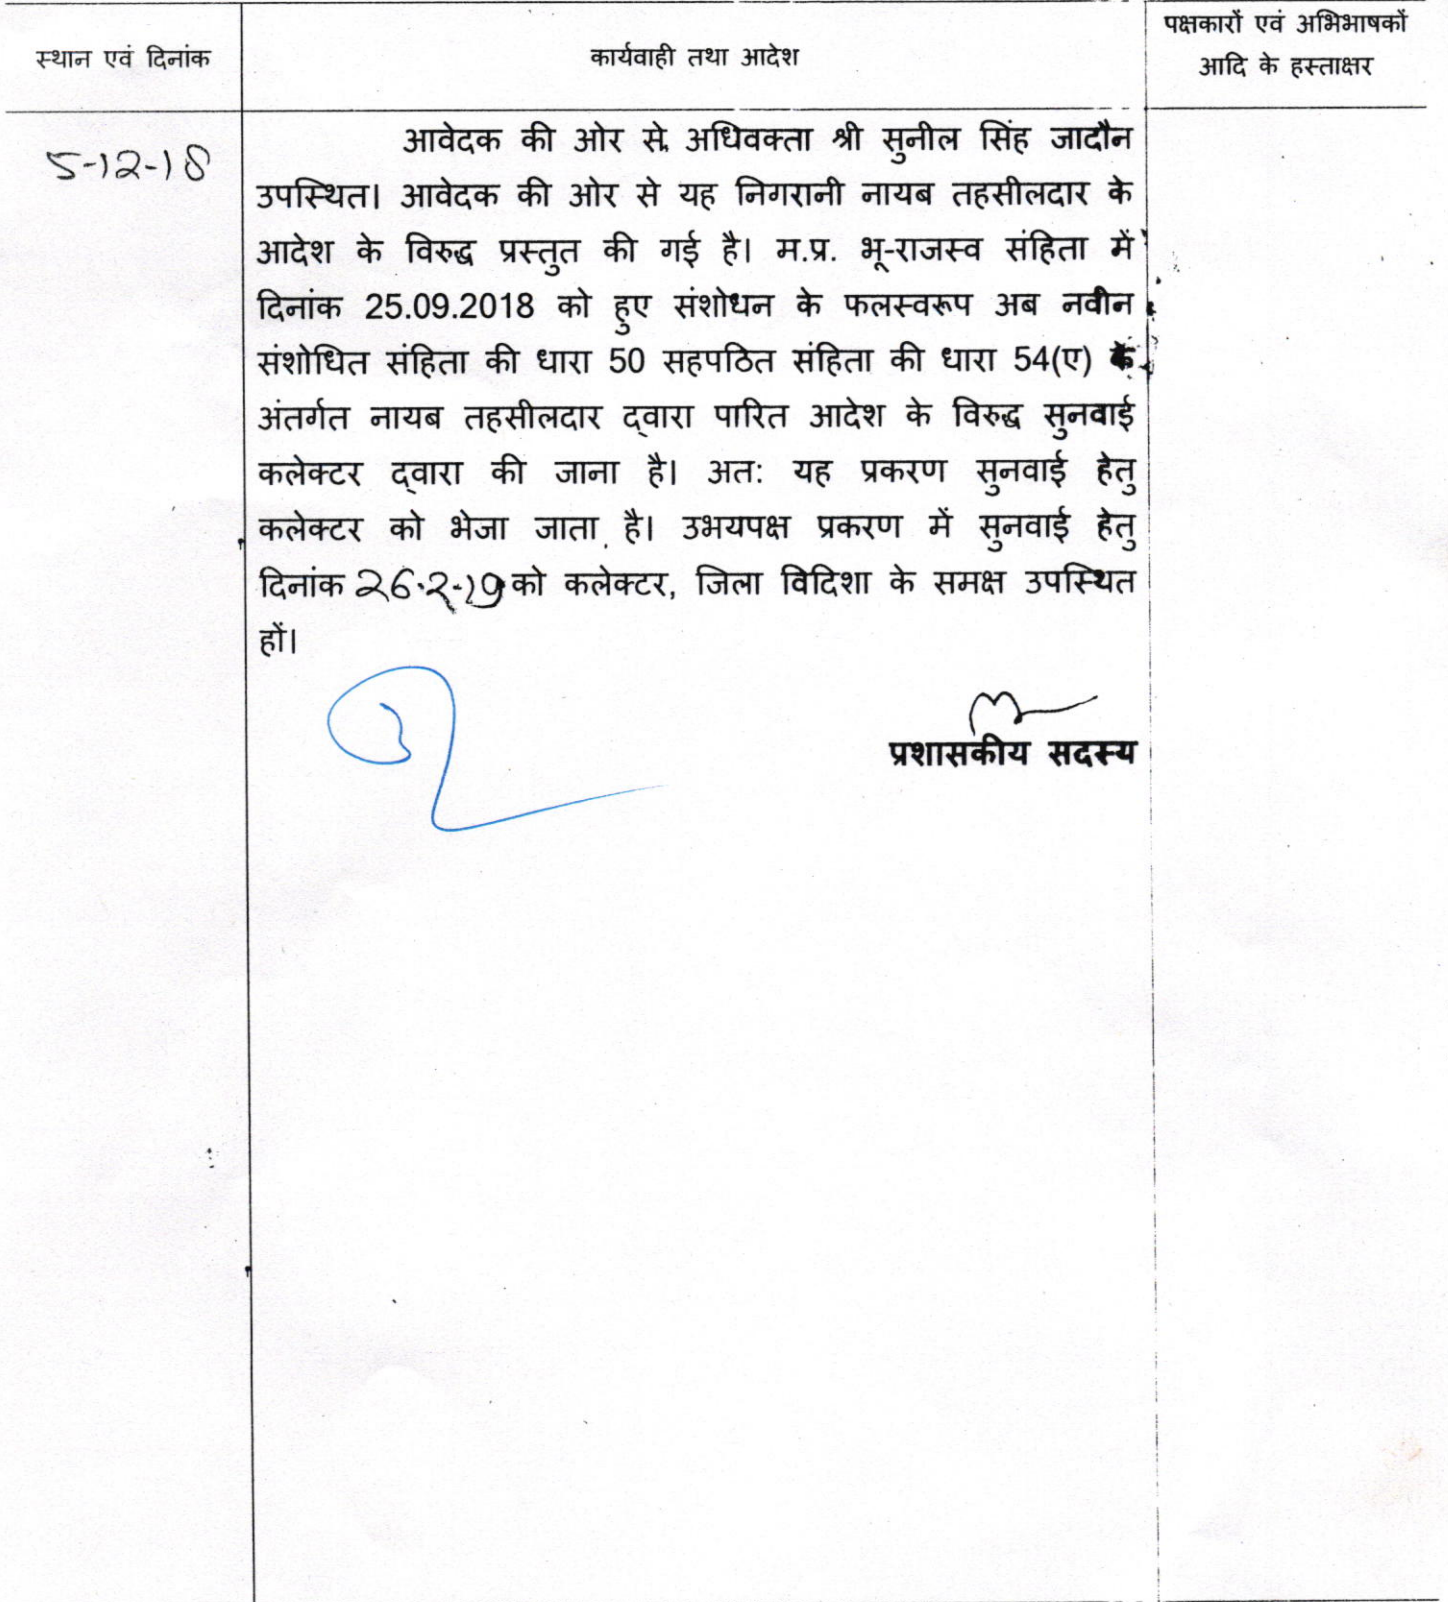 स्थान एवं दिनांक
कार्यवाही तथा आदेश
पक्षकारों एवं अभिभाषकों
आदि के हस्ताक्षर
5-12-18
आवेदक की ओर से अधिवक्ता श्री सुनील सिंह जादौन
उपस्थित। आवेदक की ओर से यह निगरानी नायब तहसीलदार के
आदेश के विरुद्ध प्रस्तुत की गई है। म.प्र. भू-राजस्व संहिता में
दिनांक 25.09.2018 को हुए संशोधन के फलस्वरूप अब नवीन
संशोधित संहिता की धारा 50 सहपठित संहिता की धारा 54(ए) के
अंतर्गत नायब तहसीलदार द्वारा पारित आदेश के विरुद्ध सुनवाई
कलेक्टर द्वारा की जाना है। अतः यह प्रकरण सुनवाई हेतु
कलेक्टर को भेजा जाता है। उभयपक्ष प्रकरण में सुनवाई हेतु
दिनांक 26.2-19 को कलेक्टर, जिला विदिशा के समक्ष उपस्थित
हों।
प्रशासकीय सदस्य